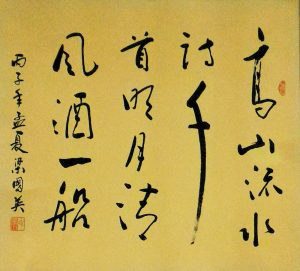 高山流水
詩千
首明月清
風酒一船
丙子年孟夏梁國英